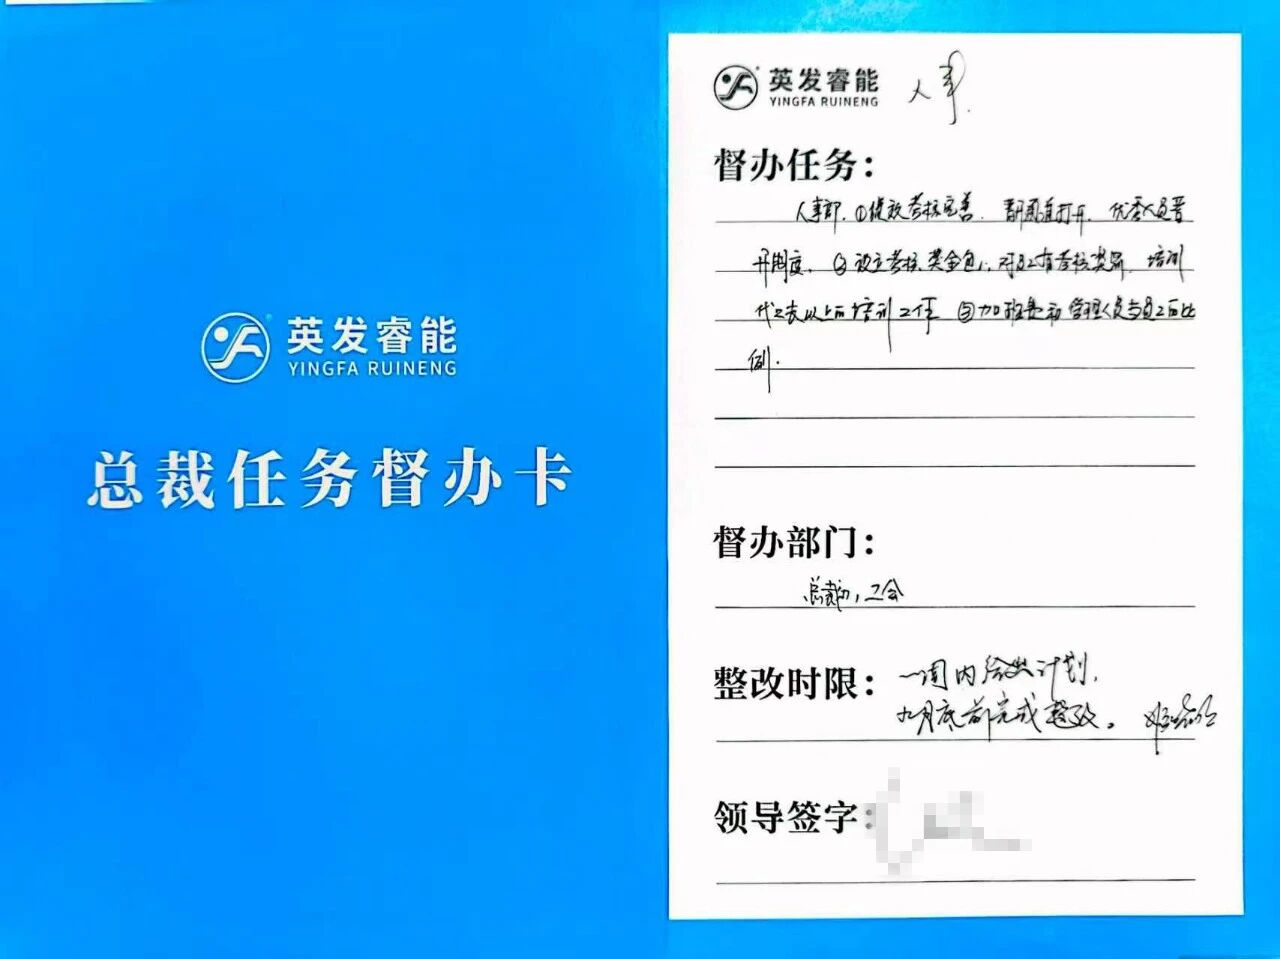 英发睿能
YINGFA RUINENG
总裁任务督办卡
英发睿能
YINGFA RUINENG
人事
督办任务：
人事部、①绩效考核完善、打开、优秀人员晋
升制度、②设立考核奖金包、对员工有考核奖罚、培训
以上的培训工作 ③加班费和管理人员与员工的比
例.
督办部门：
总裁办，工会
整改时限：
一周内给出计划，
九月底前完成整改。
领导签字：